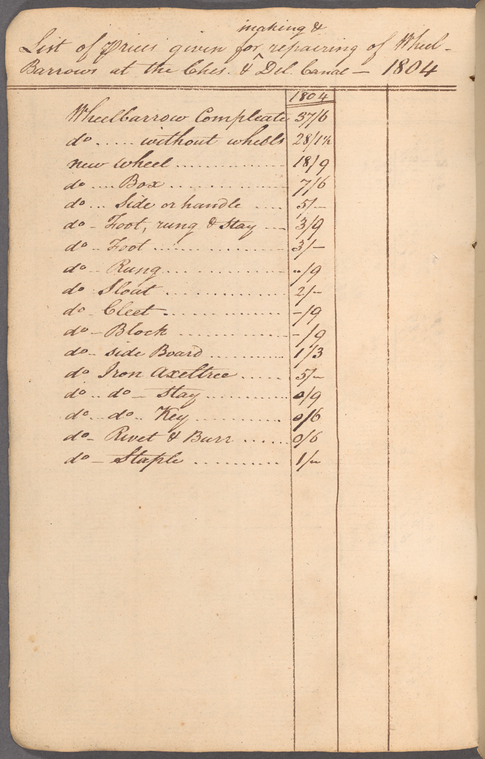 making &
List of Prices given for ^ repairing of Wheel-
Barrows at the Ches. & Del. Canal – 1804
1804
Wheelbarrow Compleate 37/6
do ..... without wheels 28/1½
new Wheel .............. 18/9
do .... Box .............. 7/6
do ... Side or handle .... 5/–
do – Foot, rung & Stay ... 3/9
do .. Foot .............. 3/–
do .. Rung .............. –/9
do Slout .............. 2/–
do – Cleet .............. –/9
do – Block .............. –/9
do .. side Board .......... 1/3
do Iron Axeltree ...... 5/–
do .. do – Stay ......... 0/9
do .. do .. Key .......... 0/6
do – Rivet & Burr ...... 0/6
do – Staple .......... 1/–